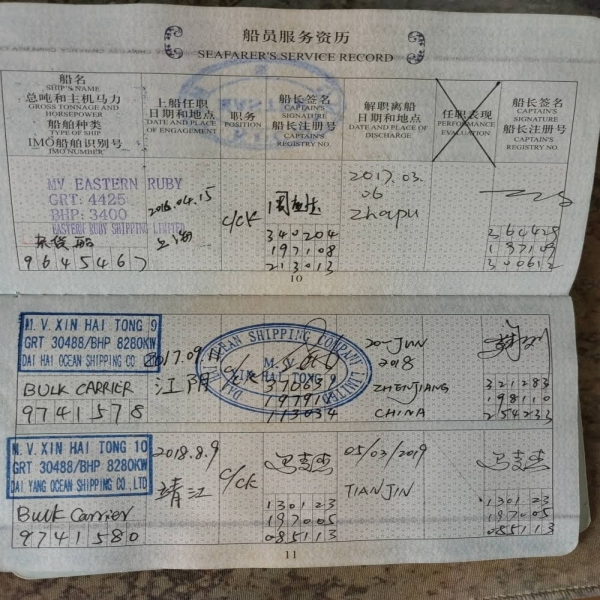 船员服务资历
SEAFARER'S SERVICE RECORD
船名
SHIP'S NAME
总吨和主机马力
GROSS TONNAGE AND
HORSEPOWER
船舶种类
TYPE OF SHIP
IMO船舶识别号
IMO NUMBER
上船任职
日期和地点
DATE AND PLACE
OF ENGAGEMENT
职务
POSITION
船长签名
CAPTAIN'S
SIGNATURE
船长注册号
CAPTAIN'S
REGISTRY NO.
解职离船
日期和地点
DATE AND PLACE OF
DISCHARGE
任职表现
PERFORMANCE
EVALUATION
船长签名
CAPTAIN'S
SIGNATURE
船长注册号
CAPTAIN'S
REGISTRY NO.
MV EASTERN RUBY
GRT: 4425
BHP: 3400
EASTERN RUBY SHIPPING LIMITED
9645467
2016.04.15
上海
C/CK
340204
197108
213013
2017.03.
06
Zhapu
10
M.V. XIN HAI TONG 9
GRT 30488/BHP 8280KW
DAI HAI OCEAN SHIPPING CO
BULK CARRIER
9741578
2017.09.
江阴
DAI HAI OCEAN SHIPPING COMPANY LIMITED
M.V.
XIN HAI TONG 9
20-JUN
2018
ZHENJIANG
CHINA
321283
198110
254233
M.V. XIN HAI TONG 10
GRT 30488/BHP 8280KW
DAI YANG OCEAN SHIPPING CO.,LTD
Bulk Carrier
9741580
2018.8.9
靖江
C/CK
130123
197005
085113
05/03/2019
TIANJIN
130123
197005
085113
11